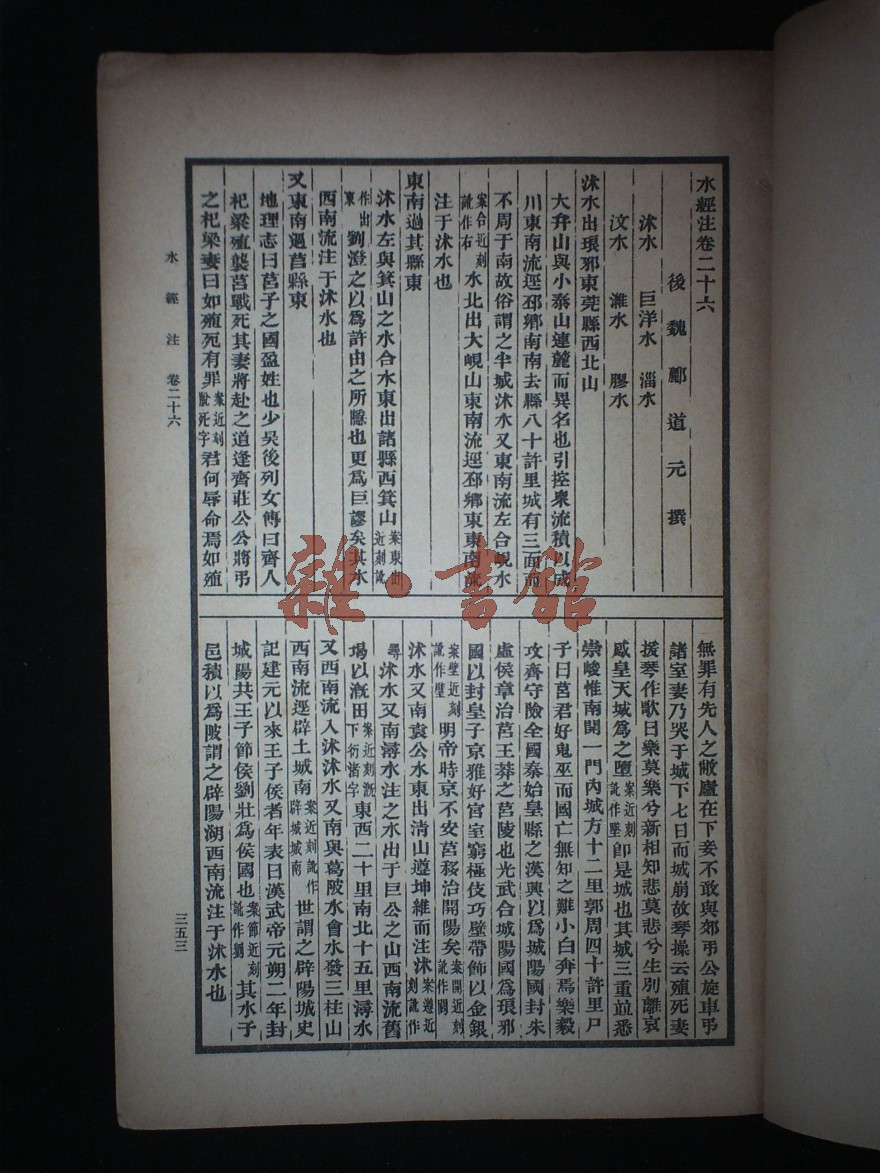 水經注卷二十六
後魏酈道元撰
沭水 巨洋水 淄水
汶水 濰水 膠水
沭水出琅邪東莞縣西北山
大弁山與小泰山連麓而異名也引控衆流積以成
川東南流逕邳鄉南南去縣八十許里城有三面而
不周于南故俗謂之半城沭水又東南流左合峴水
案合近刻訛作右 水北出大峴山東南流逕邳鄉東東南流
注于沭水也
東南過其縣東
沭水左與箕山之水合水東出諸縣西箕山 案東出近刻訛
作出東 劉澄之以爲許由之所隱也更爲巨謬矣其水
西南流注于沭水也
又東南過莒縣東
地理志曰莒子之國盈姓也少昊後列女傳曰齊人
杞梁殖襲莒戰死其妻將赴之道逢齊莊公公將弔
之杞梁妻曰如殖死有罪 案近刻脫死字 君何辱命焉如殖
無罪有先人之敝廬在下妾不敢與郊弔公旋車弔
諸室妻乃哭于城下七日而城崩故琴操云殖死妻
援琴作歌曰樂莫樂兮新相知悲莫悲兮生別離哀
感皇天城爲之墮 案近刻訛作墜 卽是城也其城三重並悉
崇峻惟南開一門內城方十二里郭周四十許里尸
子曰莒君好鬼巫而國亡無知之難小白奔焉樂毅
攻齊守險全國秦始皇縣之漢興以爲城陽國封朱
虛侯章治莒王莽之莒陵也光武合城陽國爲琅邪
國以封皇子京雅好宮室窮極伎巧壁帶飾以金銀
案壁近刻訛作璧 明帝時京不安莒移治開陽矣 案開近刻訛作闢
沭水又南袁公水東出清山遵坤維而注沭 案遵近刻訛作
尋 沭水又南潯水注之水出于巨公之山西南流舊
堨以漑田 案近刻漑下衍渚字 東西二十里南北十五里潯水
又西南流入沭沭水又南與葛陂水會水發三柱山
西南流逕辟土城南 案近刻訛作辟城城南 世謂之辟陽城史
記建元以來王子侯者年表曰漢武帝元朔二年封
城陽共王子節侯劉壯爲侯國也 案節近刻訛作劉 其水子
邑積以爲陂謂之辟陽湖西南流注于沭水也
水經注 卷二十六
三五三
雜·書館